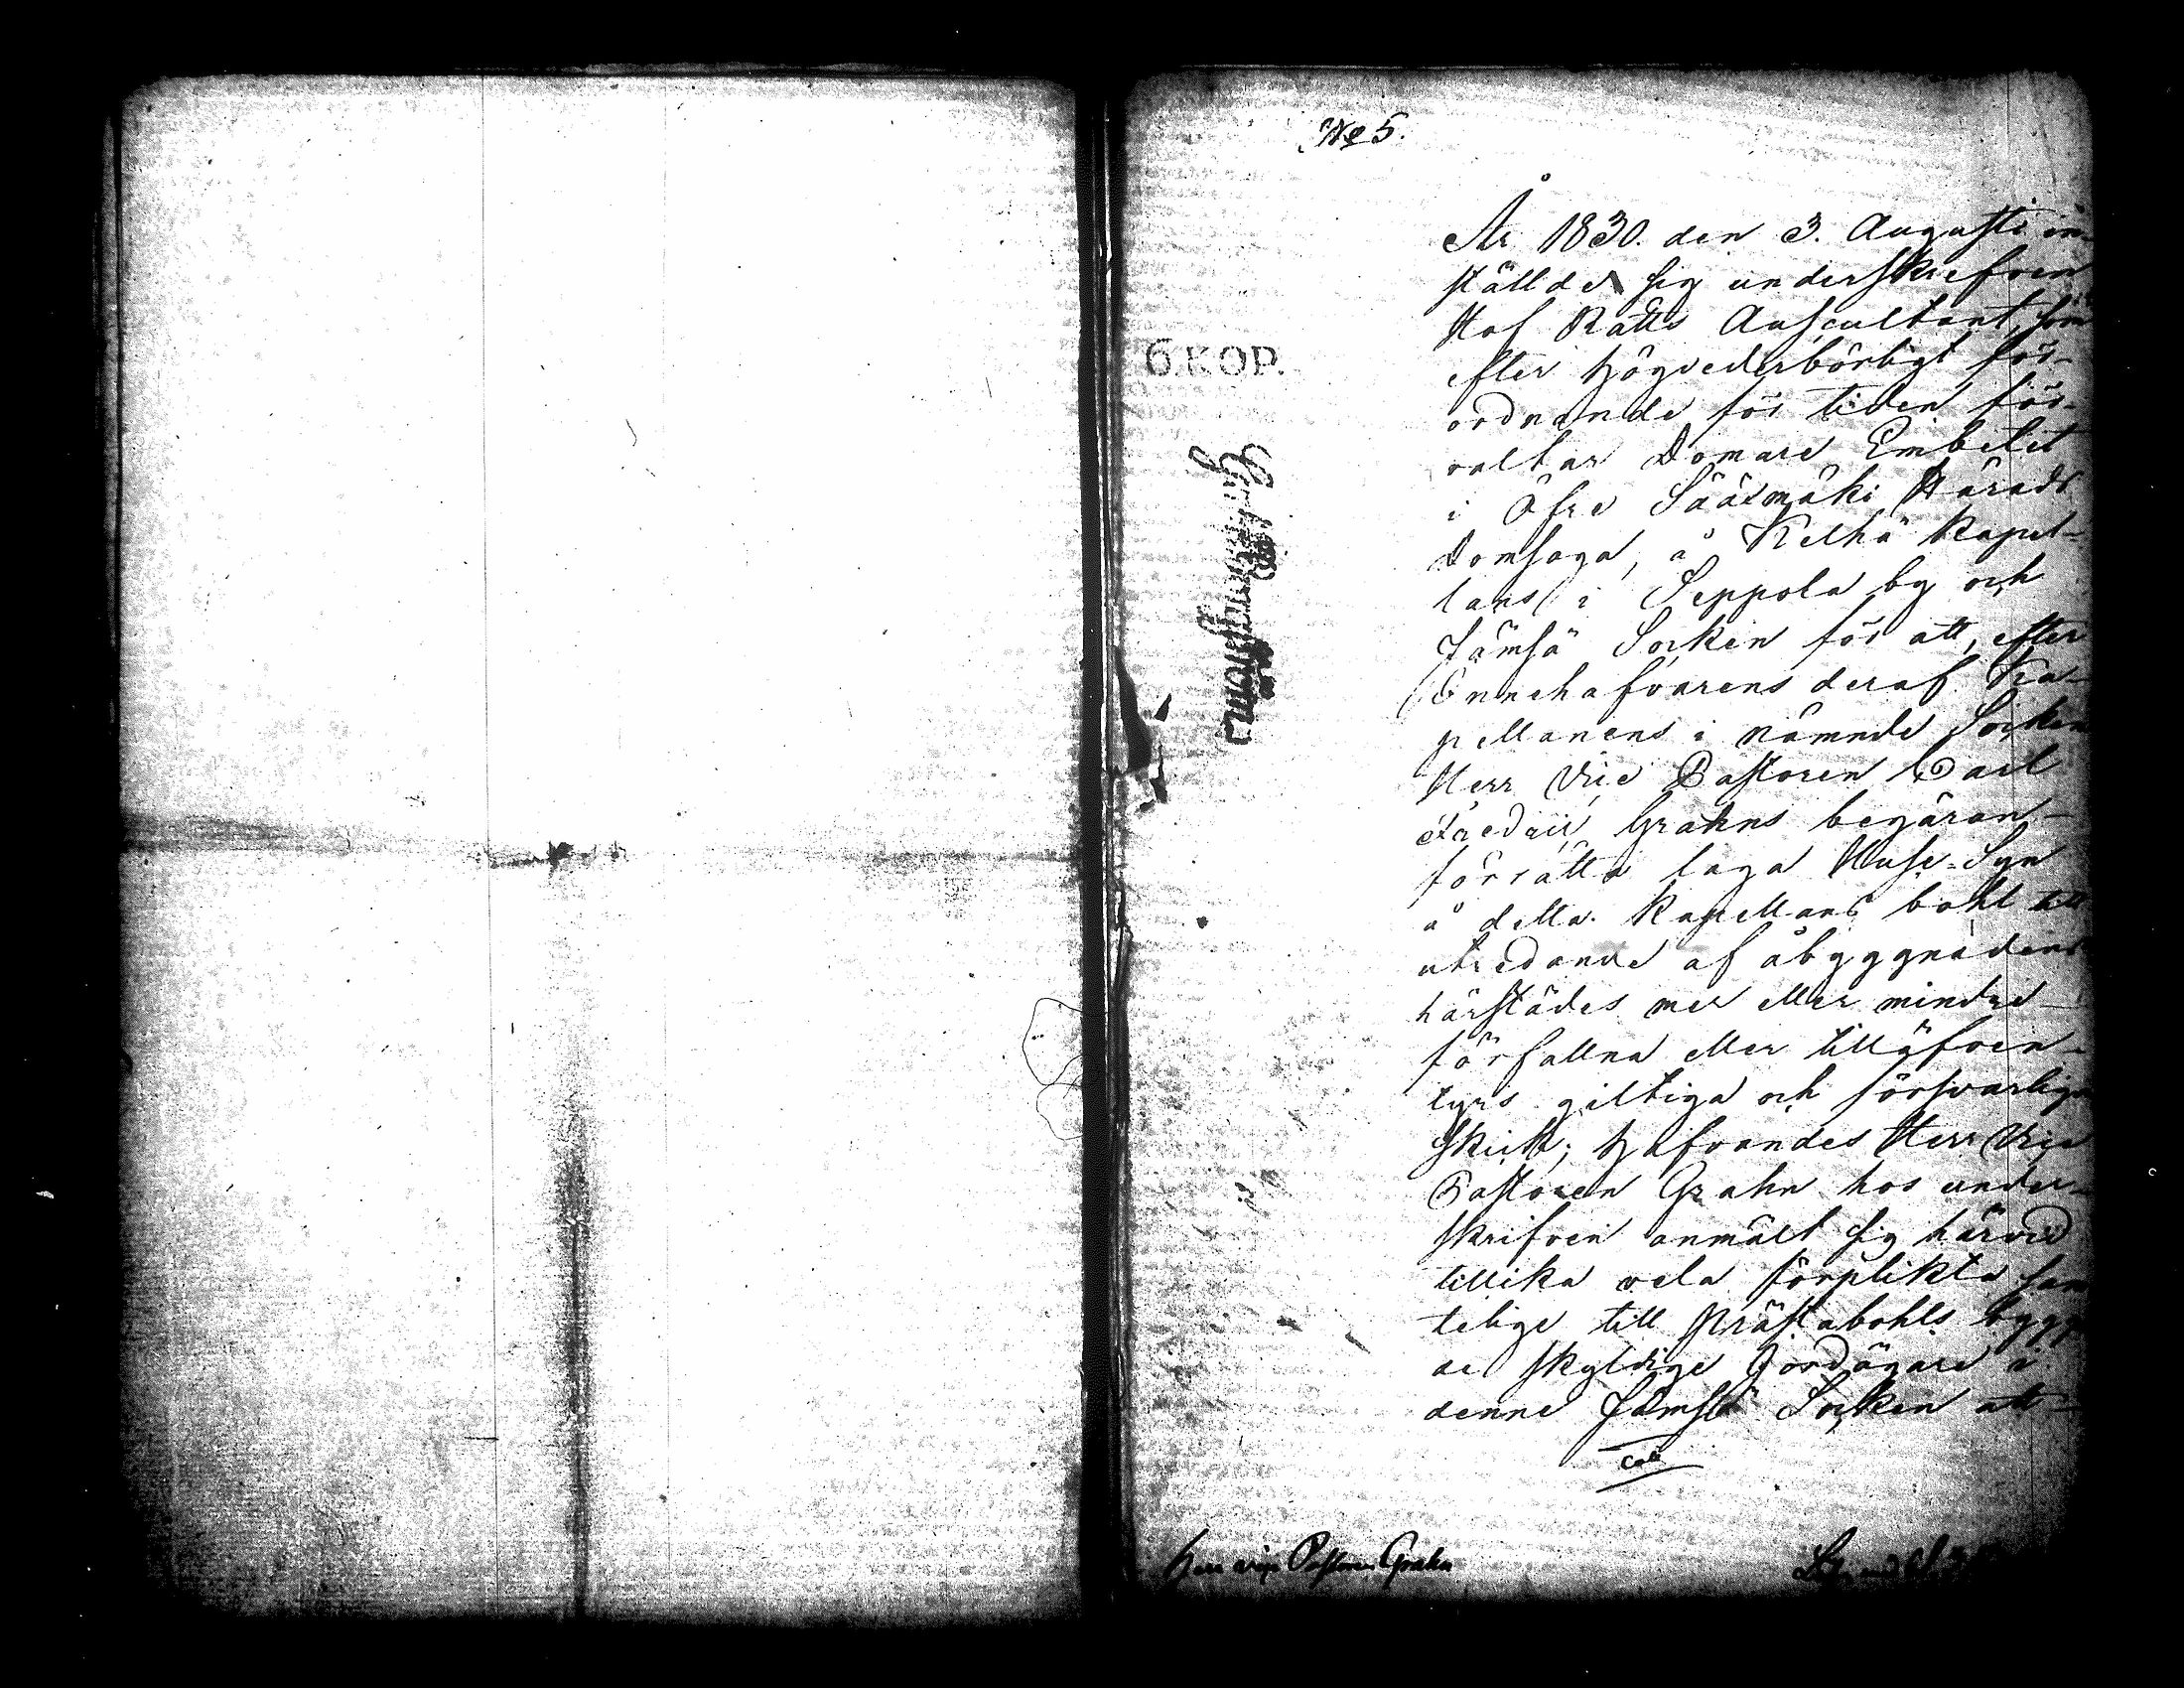 No 5.
År 1830. den 3. Augusti in-
ställde sig underskrefven
Hof Rätts Auscultant, som
efter högvederbörligt för-
ordnande för tiden för-
valtar Domare Embetet
i Öfre Sääxmäki Härads
Domsaga, å Kelhä Kapel-
lans i Seppola by och
Jämsä Socken för att, efter
Innehafvarens deraf Ka-
pellanens i nämnde Socken
Herr Vice Pastoren Carl
Grahns begäran
förrätta laga Huse-Syn
å detta Kapellans bohl till
utredande af åbyggnadens
härstädes mer eller mindre
förfallna eller tilläfven-
tyrs giltiga och försvarliga
skick; hafvandes Herr Vice
Pastoren Grahn hos under-
skrifven anmält sig härvid
tillika vela förplikta sam
telige till Prästabohls bygg
ad skyldige Jordägare i
denne Jämsä Socken att
6.KOP.
Herr vice Pastoren Grahn